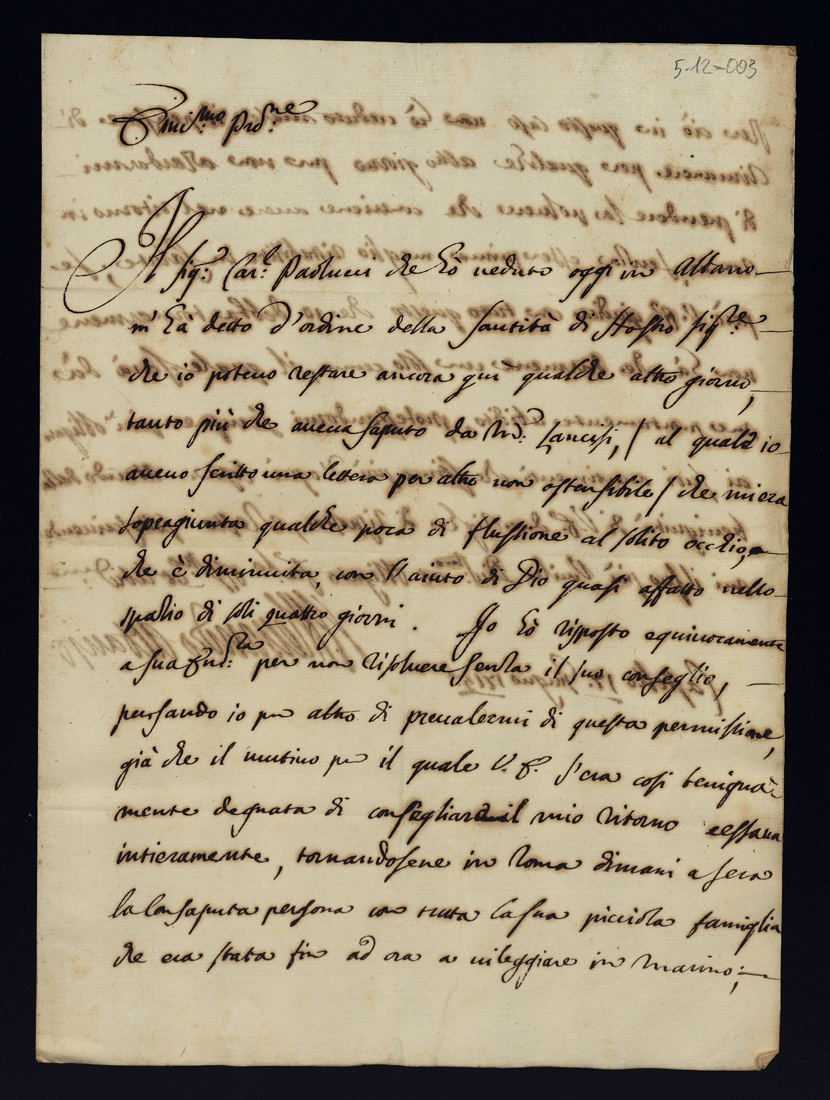 5-12-003
Em.mo Prõne
Il Sig.r Car.l Paolucci che hò veduto oggi in Albano
m'hà detto d'ordine della Santità di Nostro Sig.re
che io potevo restare ancora quì qualche altro giorno,
tanto più che aveva saputo da M.r Lancisi, / al quale io
avevo scritto una lettera per altro non ostensibile / che mi era
sopragiunta qualche poca di flussione al solito occhio,
che è diminuita, con l'aiuto di Dio quasi affatto nello
spazio di soli quattro giorni. Io hò risposto equivocamente
a sua Em.za per non risolvere senza il suo conseglio,
pensando io per altro di prevalermi di questa permissione,
già che il motivo per il quale V. E. s'era così benigna-
mente degnata di consegliare il mio ritorno cessava
intieramente, tornandosene in Roma dimani a sera
la consaputa persona con tutta la sua picciola famiglia
che era stata fin ad ora a vileggiare in Marino;